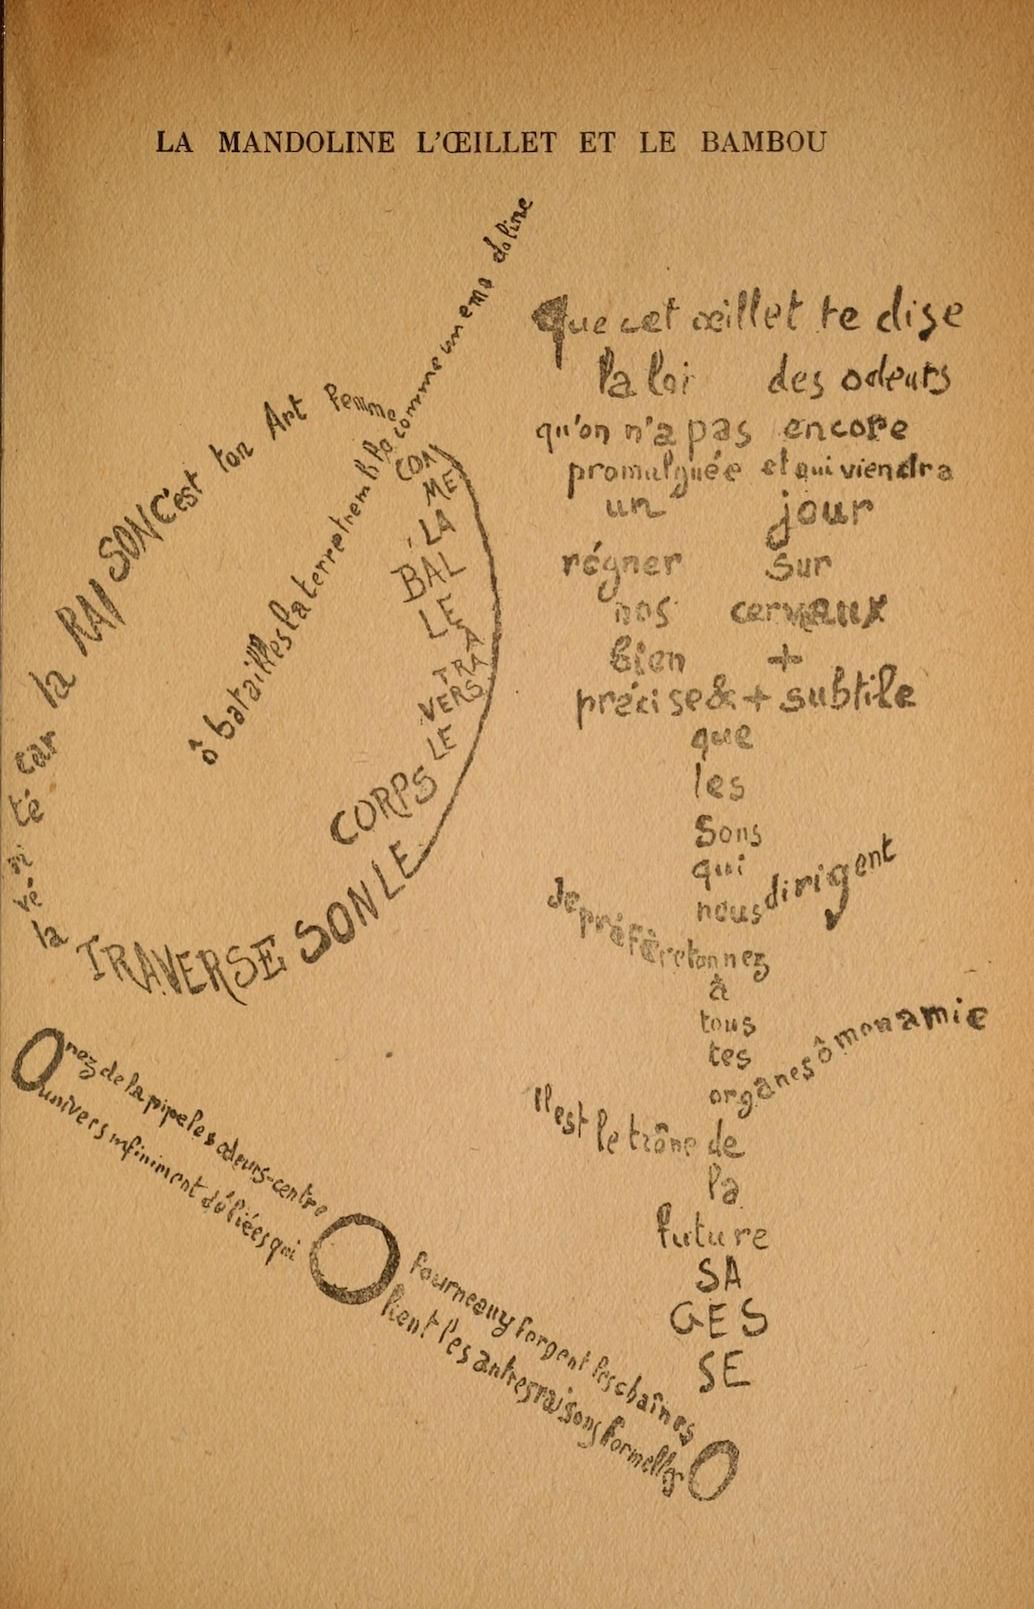 LA MANDOLINE L'ŒILLET ET LE BAMBOU
ô batailles la terre tremble comme une mandoline
COM
ME
LA
BAL
LE
À
TRA
VERS
LE
CORPS
LE
SON
TRAVERSE
la
vé
ri
té
car
la
RAISON
C'est ton Art femme
Que cet œillet te dise
la loi des odeurs
qu'on n'a pas encore
promulguée et qui viendra
un jour
régner sur
nos cerveaux
bien +
précise & + subtile
que
les
Sons
qui
nous dirigent
Je préfère ton nez
à
tous
tes
organes ô mon amie
Il est le trône de
la
future
SA
GES
SE
O nez de la pipe les odeurs-centre
univers infiniment déliées qui
O fourneau y forgent les chaînes
lient les autres raisons formelles
O